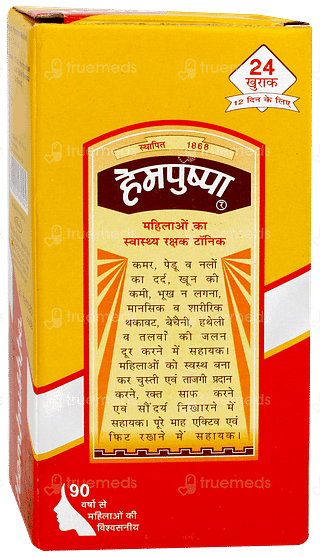 24
खुराक
12 दिन के लिए
स्थापित 1868
हेमपुष्पा
R
महिलाओं का
स्वास्थ्य रक्षक टॉनिक
कमर, पेडू व नलों
का दर्द, खून की
कमी, भूख न लगना,
मानसिक व शारीरिक
थकावट, बेचैनी, हथेली
व तलवों की जलन
दूर करने में सहायक।
महिलाओं को स्वस्थ बना
कर चुस्ती एवं ताजगी प्रदान
करने, रक्त साफ करने
एवं सौंदर्य निखारने में
सहायक। पूरे माह एक्टिव एवं
फिट रखाने में सहायक।
90
वर्षो से
महिलाओं की
विश्वसनीय
truemeds
truemeds
truemeds
truemeds
truemeds
truemeds
truemeds
truemeds